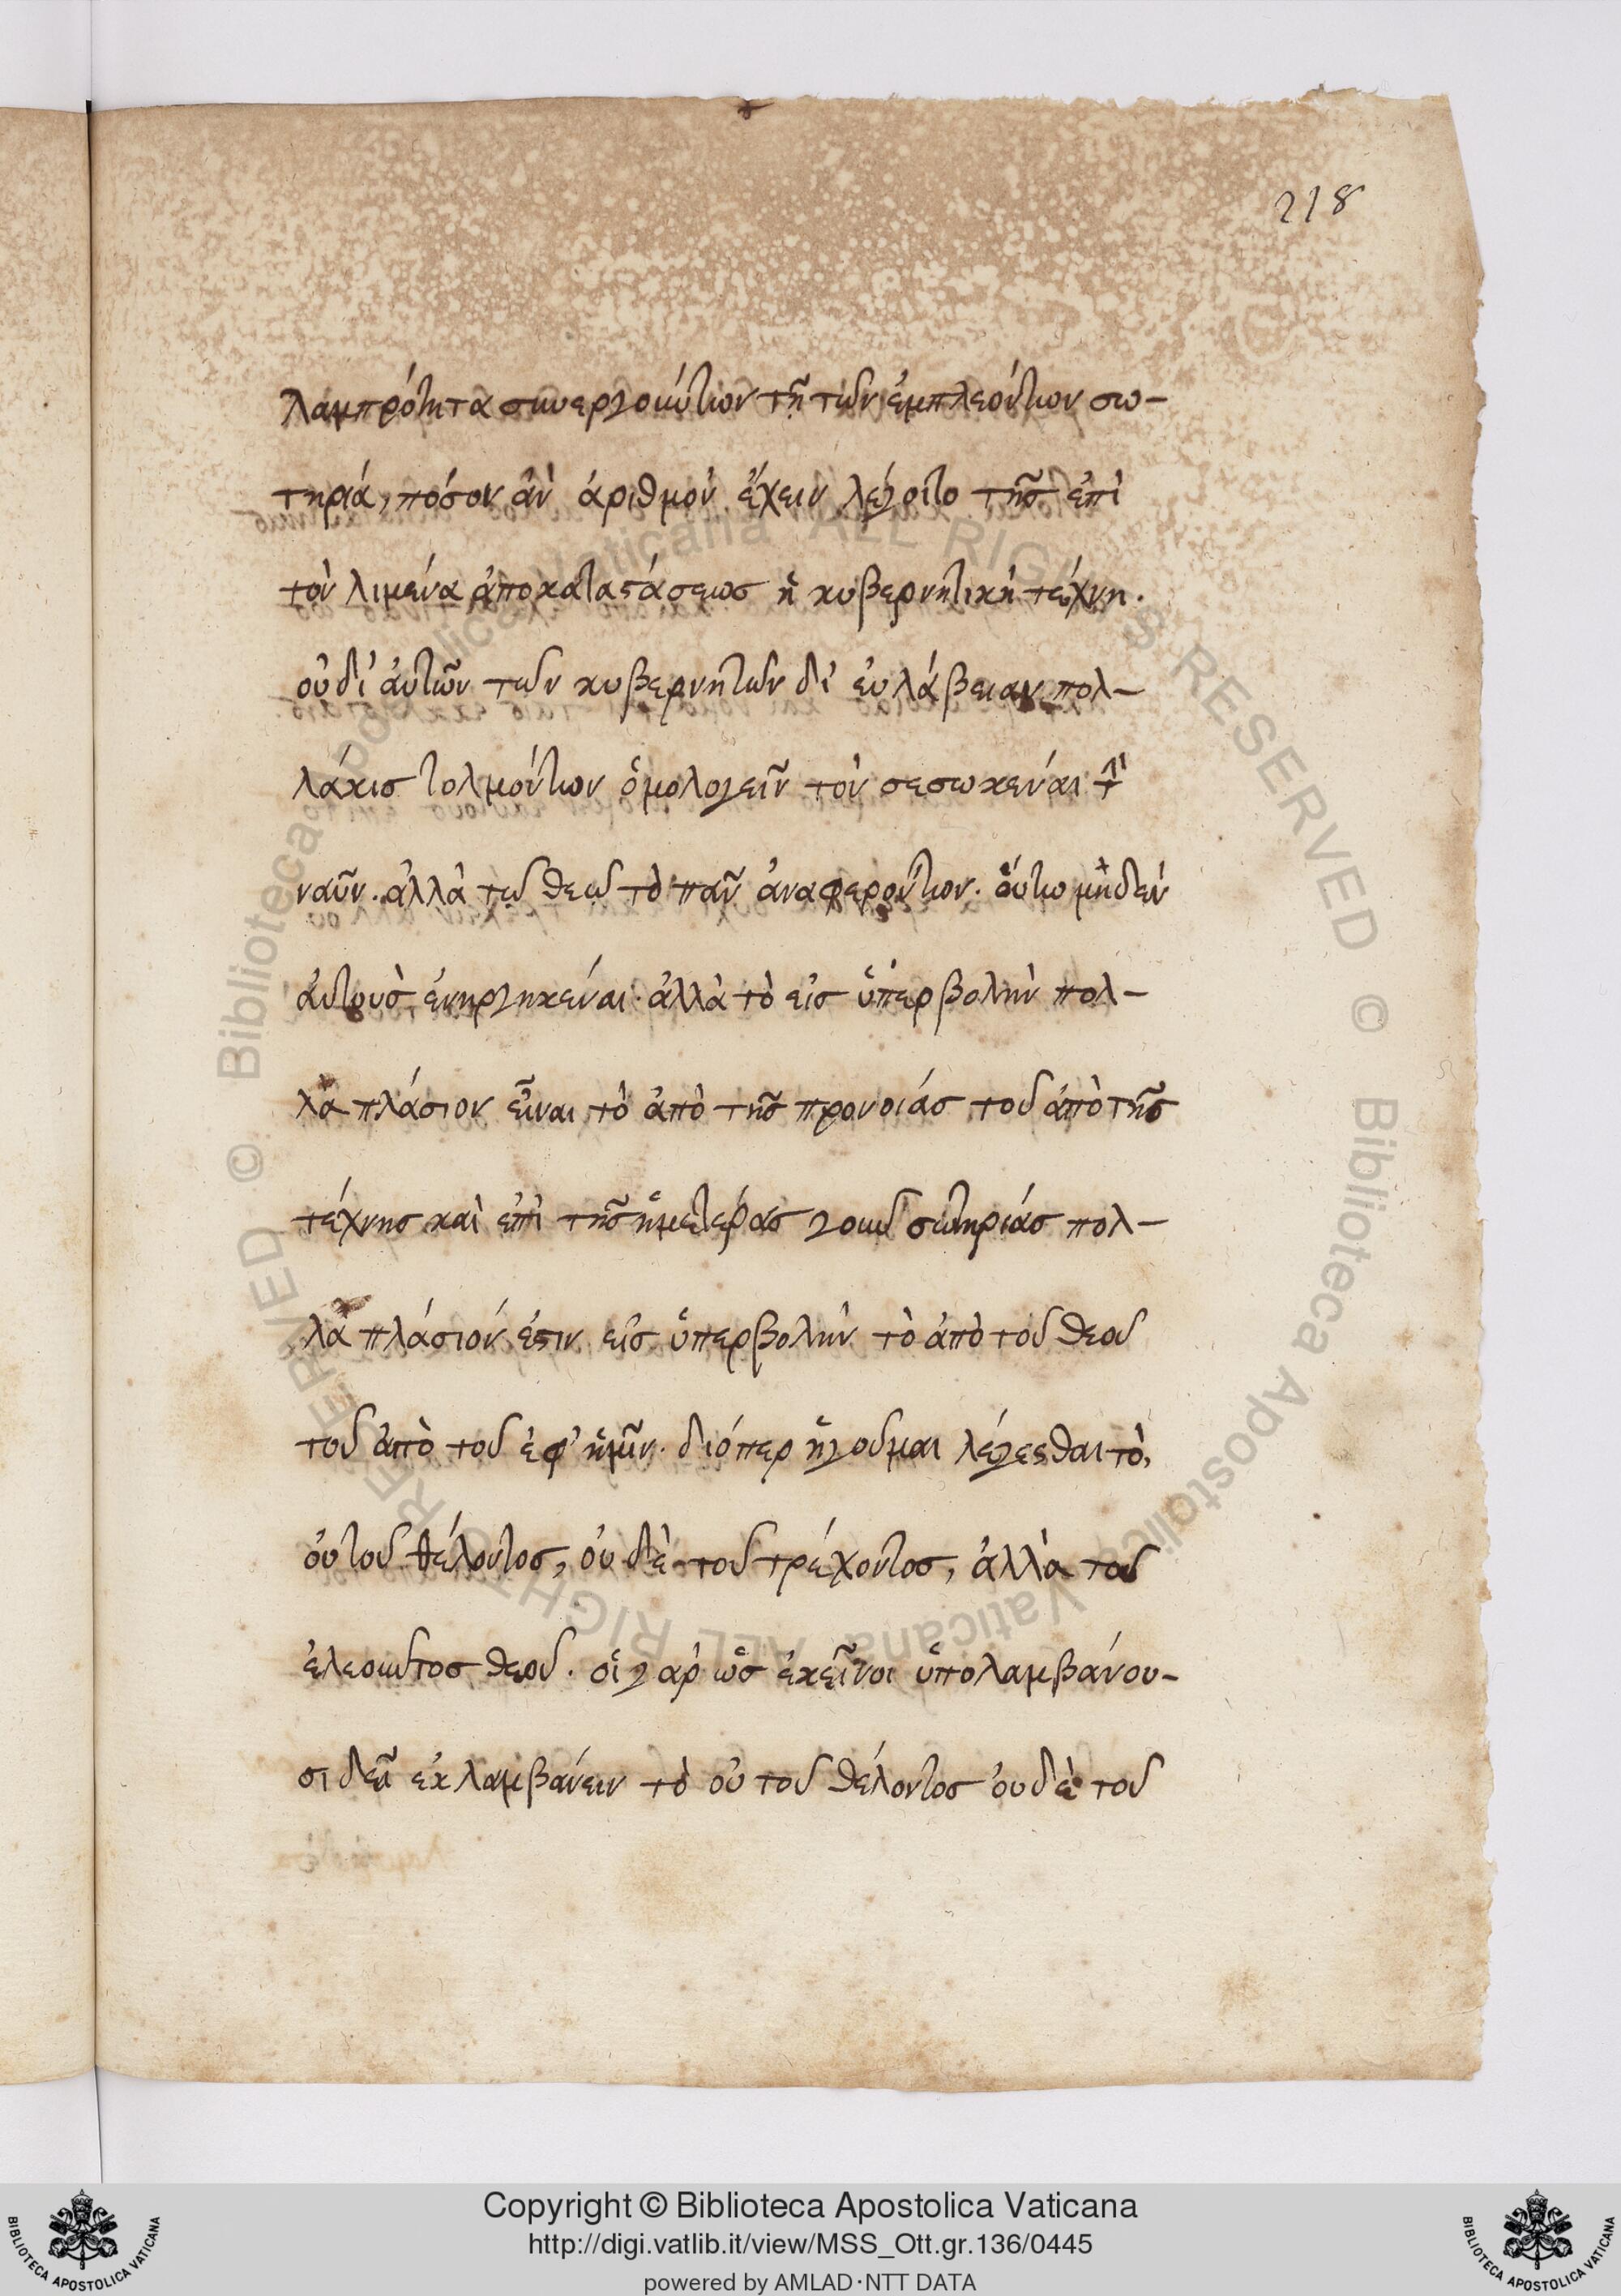 218
λαμπρότητα συνεργούντων τῆ τῶν ἐμπλεόντων σω-
τηρία, πόσον ἂν ἀριθμὸν ἔχειν λέγοιτο τῆς ἐπὶ
τὸν λιμένα ἀποκαταστάσεως ἡ κυβερνητικὴ τέχνη.
οὐδ' αὐτῶν τῶν κυβερνητῶν δι' εὐλάβειαν πολ-
λάκις τολμόντων ὁμολογεῖν τὸν σεσωκέναι τὴν
ναῦν. ἀλλὰ τῶ θεῶ τὸ πᾶν ἀναφερόντων. οὕτω μηδὲν
αὐτοὺς ἐνηργηκέναι. ἀλλὰ τὸ εἰς ὑπερβολὴν πολ-
λαπλάσιον εἶναι τὸ ἀπὸ τῆς προνοίας τοῦ ἀπὸ τῆς
τέχνης καὶ ἐπὶ τῆς ἡμετέρας γοῦν σωτηρίας πολ-
λαπλάσιόν ἐστιν εἰς ὑπερβολὴν τὸ ἀπὸ τοῦ θεοῦ
τοῦ ἀπὸ τοῦ ἐφ' ἡμῖν. διόπερ ἡγοῦμαι λέγεσθαι τὸ,
οὐ τοῦ θέλοντος, οὐδὲ τοῦ τρέχοντος, ἀλλὰ τοῦ
ἐλεοῦντος θεοῦ. οἱ γὰρ ὡς ἐκεῖνοι ὑπολαμβάνου-
σι δεῖ ἐκλαμβάνειν τὸ οὐ τοῦ θέλοντος οὐδὲ τοῦ
© Biblioteca Apostolica Vaticana ALL RIGHTS RESERVED © Biblioteca Apostolica Vaticana ALL RIGHTS RESERVED
BIBLIOTECA APOSTOLICA VATICANA
Copyright © Biblioteca Apostolica Vaticana
http://digi.vatlib.it/view/MSS_Ott.gr.136/0445
powered by AMLAD·NTT DATA
BIBLIOTECA APOSTOLICA VATICANA